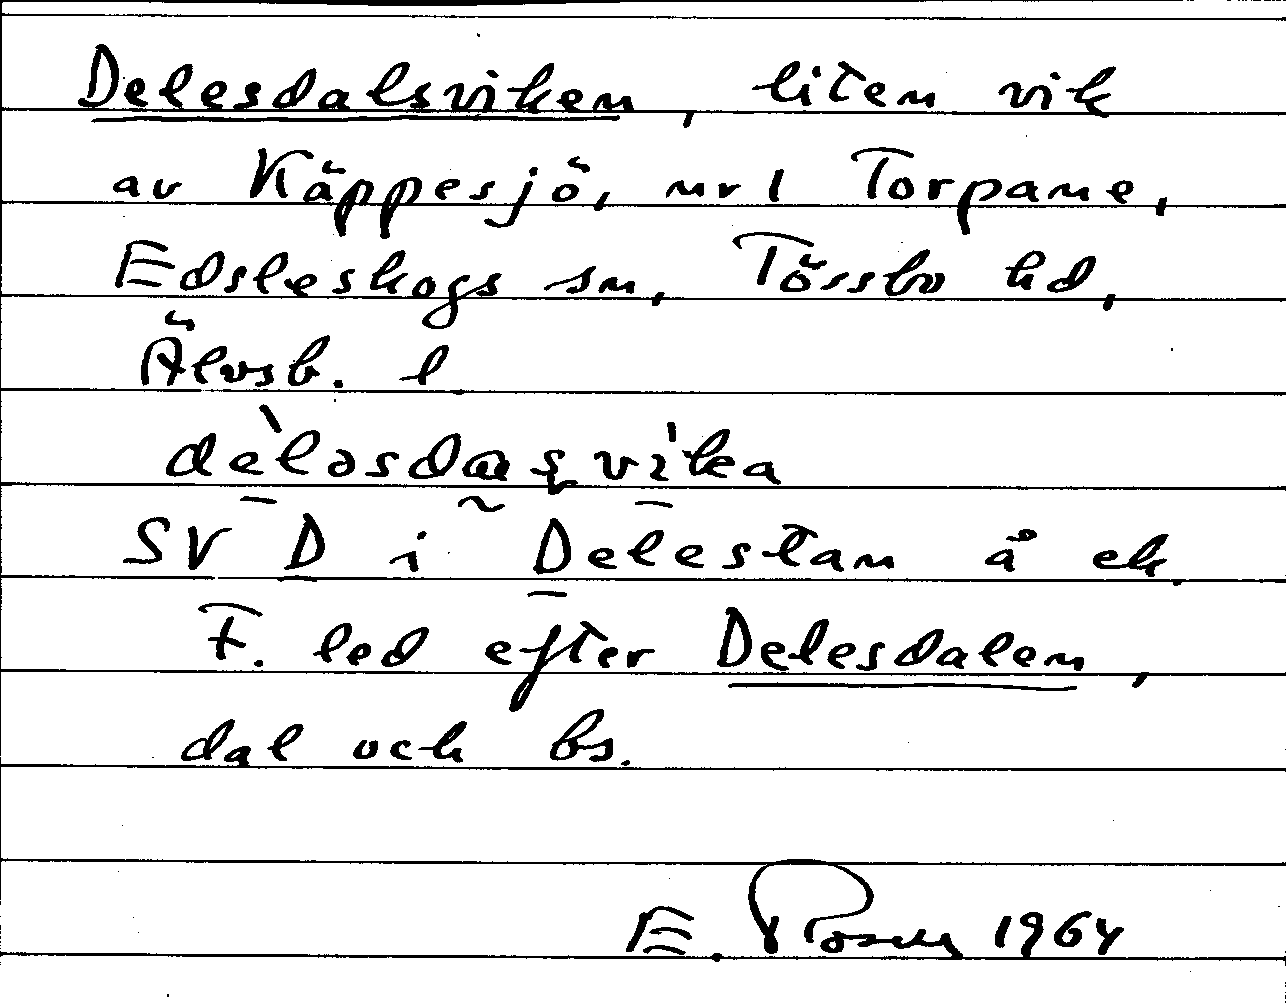 Delesdalsviken, liten vik
av Käppesjö, nr 1 Torpane,
Edsleskogs sn, Tössbo hd,
Älvsb. l.
SV D i Delestan å ek.
F. led efter Delesdalen,
dal och bs.
E. 1964